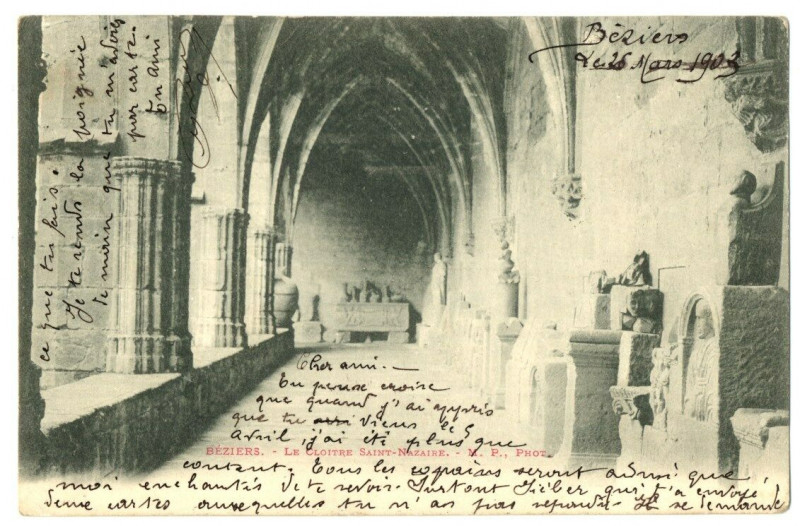 Béziers
Le 26 Mars 1903
Cher ami. -
Tu peux croire
que quand j'ai appris
que tu viens le 5
Avril, j'ai été plus que
content. Tous les copains seront aussi que
moi enchantés de te revoir. Surtout qui t'a envoyé
deux cartes auxquelles tu n'as pas répondu. Il se demande
ce que tu fais.
Je te serre la poignée
de main que tu m'as
par carte.
Ton ami
BÉZIERS. - LE CLOITRE SAINT-NAZAIRE. - M. P., PHOT.